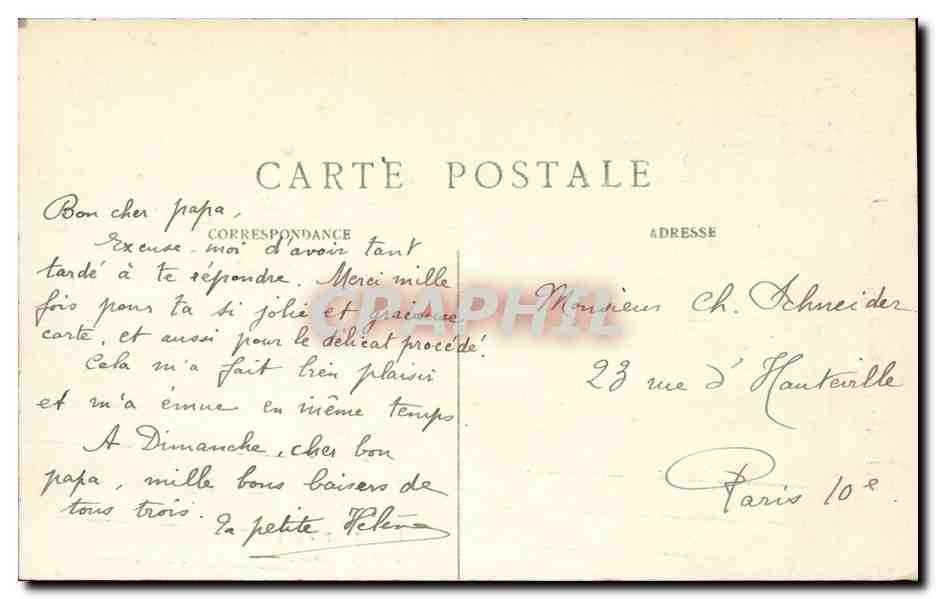 CARTE POSTALE
Bon cher papa,
CORRESPONDANCE
Excuse-moi d'avoir tant
tardé à te répondre. Merci mille
fois pour ta si jolie et gracieuse
carte, et aussi pour le délicat procédé.
Cela m'a fait bien plaisir
et m'a émue en même temps
A Dimanche, cher bon
papa, mille bons baisers de
tous trois.
Ta petite Hélène
ADRESSE
Monsieur Ch. Schneider
23 rue d'Hauteville
Paris 10e.
CPAPHIL